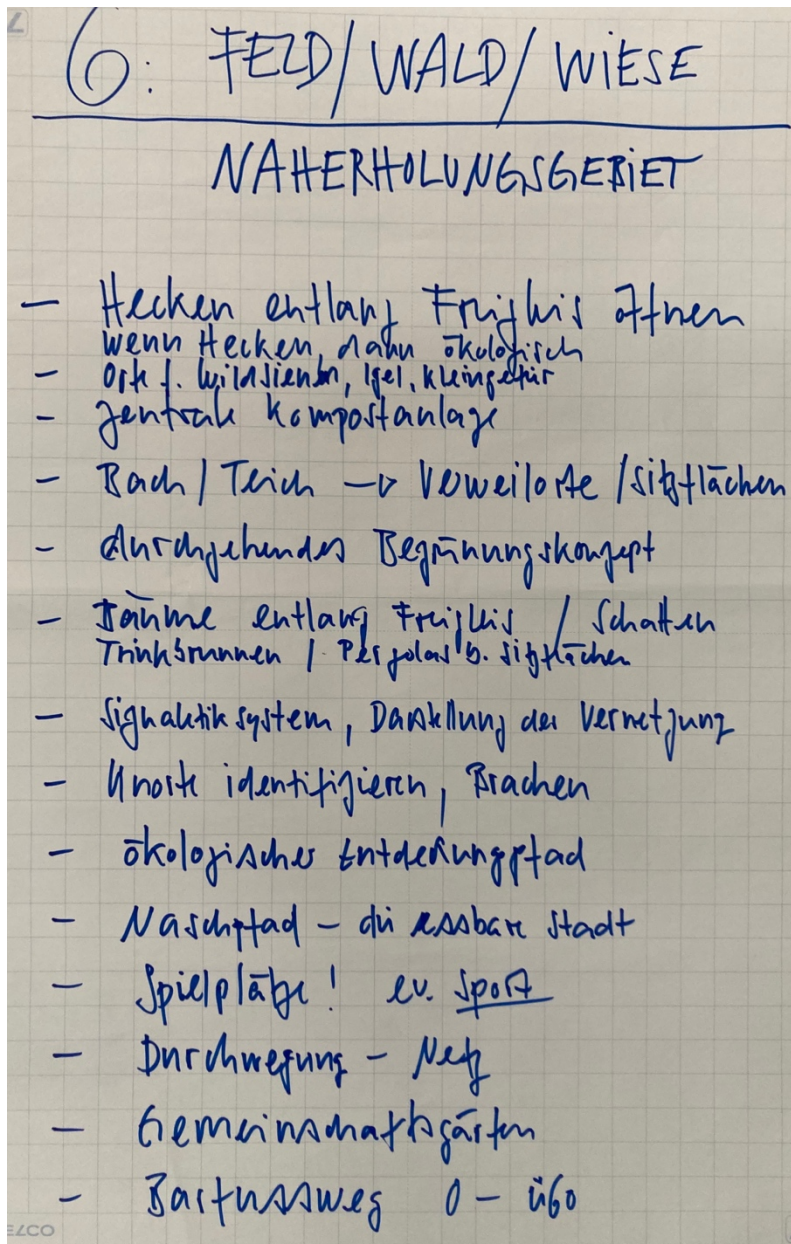 6: FELD/WALD/WIESE
NAHERHOLUNGSGEBIET
– Hecken entlang Freigleis öffnen
wenn Hecken, dann ökologisch
– Orte f. Wildbienen, Igel, Kleingetier
– zentrale Kompostanlage
– Bach / Teich → Verweilorte / Sitzflächen
– durchgehendes Begrünungskonzept
– Bäume entlang Freigleis / Schatten
Trinkbrunnen / Pergolas b. Sitzflächen
– Signaletiksystem, Darstellung der Vernetzung
– Unorte identifizieren, Brachen
– ökologischer Entdeckungspfad
– Naschpfad – die essbare Stadt
– Spielplätze! ev. Sport
– Durchwegung – Netz
– Gemeinschaftsgärten
– Barfussweg 0 – ü60
ELCO